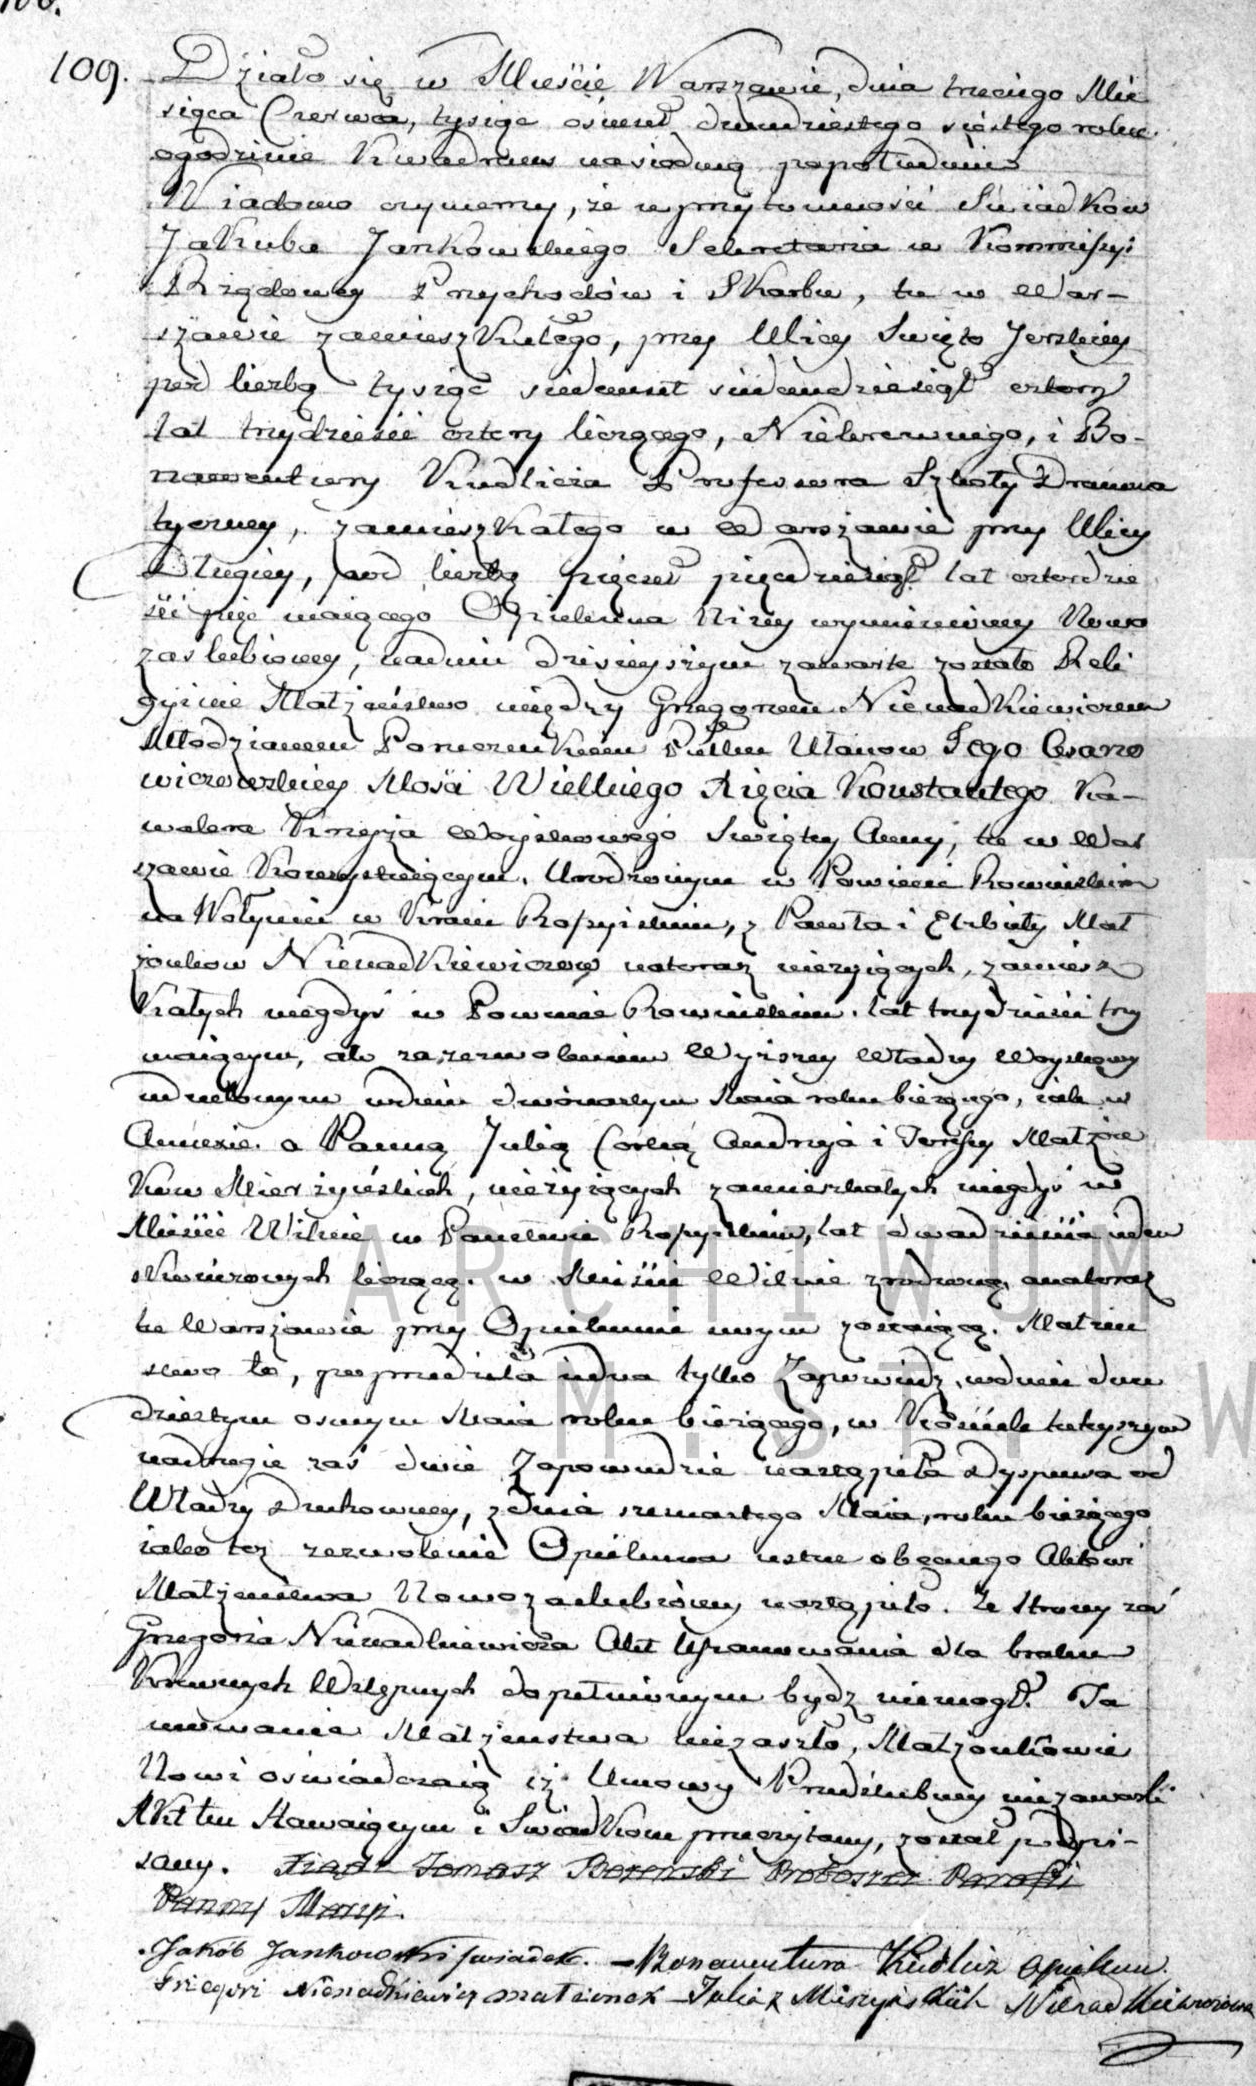 109. Działo się w Mieście Warszawie, dnia trzeciego Mie
siąca Czerwca, tysiąc ośmset dwudziestego szóstego roku
ogodzinie Kwadrans na siodmą popołudniu
Wiadomo czyniemy, że w przytomności Swiadków
Jakuba Jankowskiego Sekretarza w Kommissyi
Rządowey Przychodów i Skarbu, tu w War-
szawie zamieszkałego, przy Ulicy Swięto Jerskiey
pod liczbą tysiąc siedmset siedmdziesiąt cztery
lat trzydzieści cztery liczącego, Niekrewnego, i Bo-
nawentury Kudlicza Professora Szkoły Drama
tyczney, zamieszkałego w Warszawie przy Ulicy
Długiey, pod liczbą pięcset pięcdziesiąt lat czterdzie
ści pięc maiącego Opiekuna Niżey wymienioney Nowo
zaslubioney, wdniu dzisieyszym zawarte zostało Reli
gyine Małżeństwo między Grzegorzem Nienadkiewiczem
Młodzianem Porucznikiem Pułku Ułanow Jego Cesarzo
wiczowskiey Mości Wielkiego Xięcia Konstantego Ka-
walera Krzyża Woyskowego Swiętey Anny, tu w War
szawie Konsystuiącym. Urodzonym w Powiecie Rowieńskim
na Wołyniu w Kraiu Rossyiskim, z Pawła i Elżbiety Mał
żonków Nienadkiewiczow natoraz nieżyiących, zamiesz
kałych niegdyś w Powiecie Rowieńskim. lat trzydzieści trzy
maiącym, ato zazezwoleniem Wyższey Władzy Woyskowey
udzielonym wdniu dwónastym Maia roku bieżącego, iak w
Annexie. a Panną Julią Corką Andrzeja i Teressy Małżon
ków Mierzyńskich, nieżyiących zamieszkałych niegdyś w
Mieście Wilnie w Panstwie Rossyiskim, lat dwadzieścia ieden
skończonych liczącą. w Mieście Wilnie zrodzoną, anateraz
tu Warszawie przy Opiekunie swym zostaiącą. Małżeń
stwo to, poprzedziła iedna tylko Zapowiedź, wdniu dwu
dziestym osmym Maia roku bieżącego, w Kościele tuteyszym
nadrugie zaś dwie Zapowiedzie nastąpiła Dyspensa od
Władzy Duchowney, zdnia szesnastego Maia, roku bieżącego
iako też zezwolenie Opiekuna ustne obecnego Aktowi
Małżeństwa Nowozaslubioney nastąpiło. Ze Strony zaś
Grzegorza Nienadkiewicza Akt Uszanowania dla braku
Krewnych Wstępnych dopełnionym bydz niemogł. Ta
mowanie Małżenstwa niezaszło, Małżonkowie
Nowi oświadczaią iż Umowy Przedślubney niezawarli
Akt ten Stawaiącym i Swiadkom przeczytany, został podpi-
sany. Xiądz Tomasz Bozenski Proboszcz Parafii
Panny Maryi.
Jakób Jankowski swiadek. – Bonawentura Kudlicz opiekun.
Grzegorz Nienadkiewicz małżonek – Julia z Mierzyńskich Nienadkiewiczowa
ARCHIWUM
M.ST. W